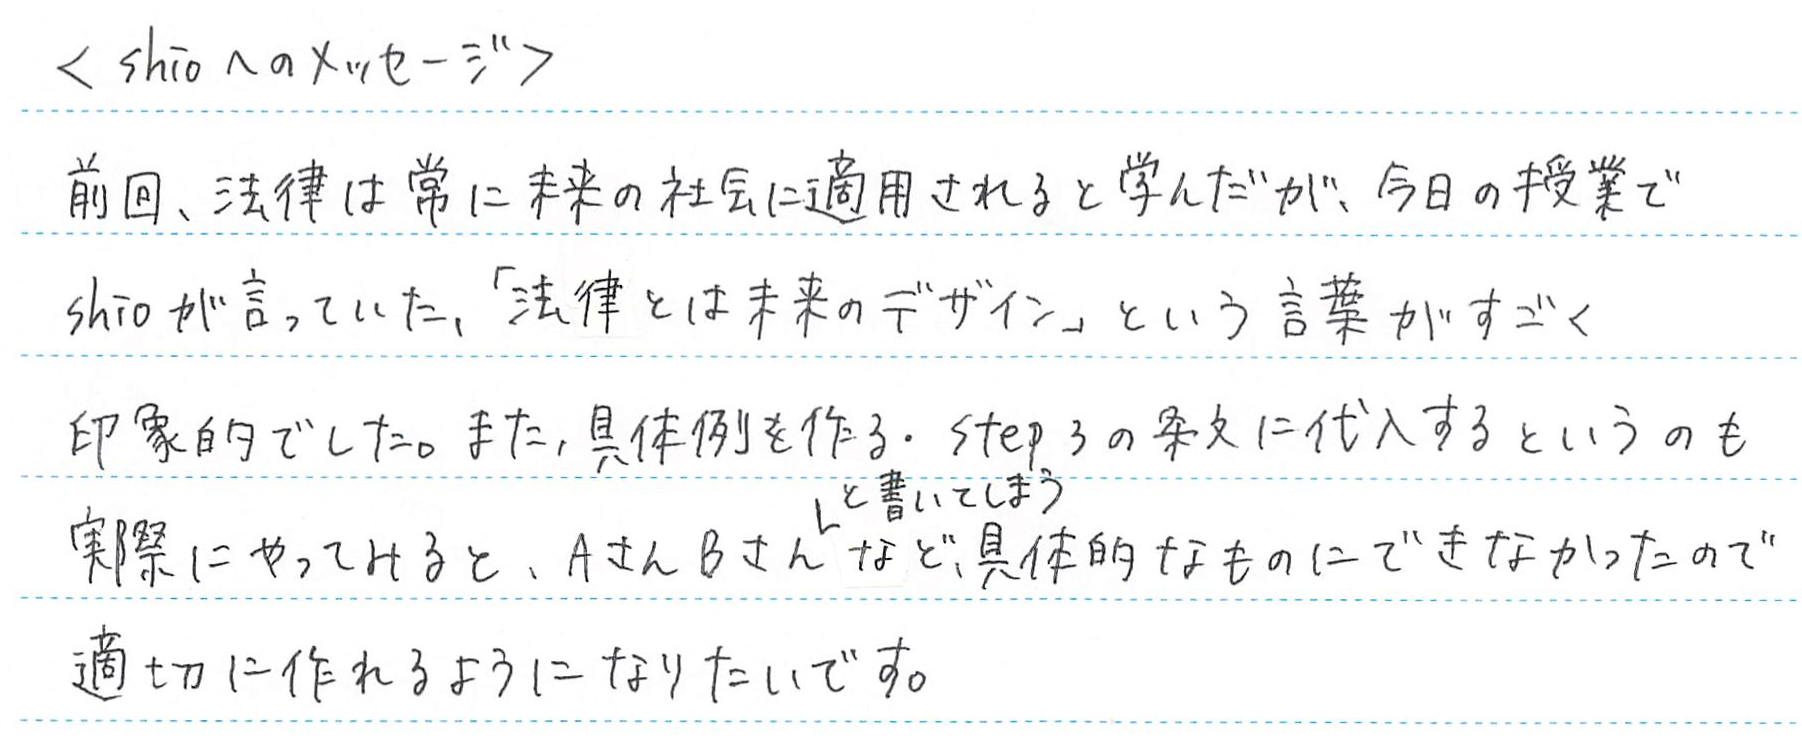 <shioへのメッセージ>
前回、法律は常に未来の社会に適用されると学んだが、今日の授業で
shioが言っていた、「法律とは未来のデザイン」という言葉がすごく
印象的でした。また、具体例を作る・step3の条文に代入するというのも
と書いてしまう
実際にやってみると、AさんBさんなど、具体的なものにできなかったので
適切に作れるようになりたいです。